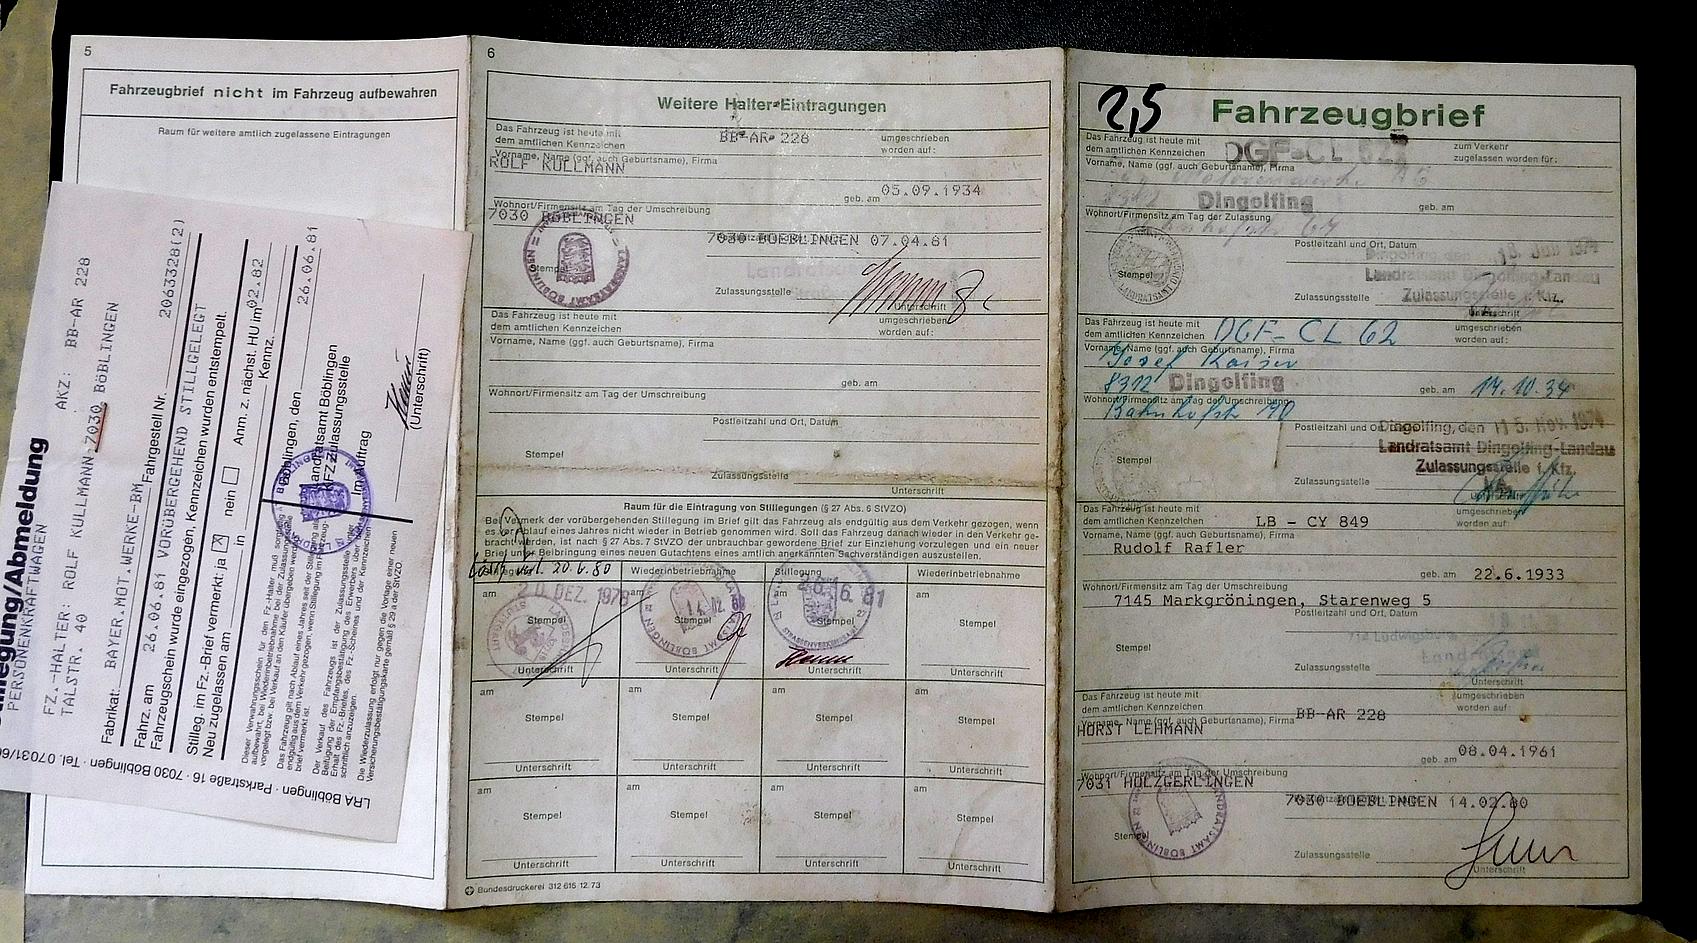 5
Fahrzeugbrief nicht im Fahrzeug aufbewahren
Raum für weitere amtlich zugelassene Eintragungen
legung/Abmeldung
PERSONENKRAFTWAGEN AKZ: BB-AR 228
FZ.-HALTER: ROLF KULLMANN
TALSTR. 40 7030 BÖBLINGEN
Fabrikat: BAYER.MOT.WERKE-BM Fahrgestell Nr. 2063328(2)
Fahrz. am 26.06.81 VORÜBERGEHEND STILLGELEGT
Fahrzeugschein wurde eingezogen, Kennzeichen wurden entstempelt.
Stilleg. im Fz.-Brief vermerkt: ja nein Anm. z. nächst. HU im 02.82
Neu zugelassen am in Kennz.
Böblingen, den 26.06.81
Landratsamt Böblingen
KFZ Zulassungsstelle
Im Auftrag
(Unterschrift)
LRA Böblingen · Parkstraße 16 · 7030 Böblingen · Tel. 07031/
6
Weitere Halter-Eintragungen
Das Fahrzeug ist heute mit
dem amtlichen Kennzeichen BB-AR- 228 umgeschrieben
worden auf:
Vorname, Name (ggf. auch Geburtsname), Firma
ROLF KULLMANN
geb. am 05.09.1934
Wohnort/Firmensitz am Tag der Umschreibung
7030 BÖBLINGEN
7030 BOEBLINGEN 07.04.81
Stempel
LANDRATSAMT BÖBLINGEN
Zulassungsstelle Unterschrift
Das Fahrzeug ist heute mit
dem amtlichen Kennzeichen umgeschrieben
worden auf:
Vorname, Name (ggf. auch Geburtsname), Firma
geb. am
Wohnort/Firmensitz am Tag der Umschreibung
Postleitzahl und Ort, Datum
Stempel
Zulassungsstelle Unterschrift
Raum für die Eintragung von Stillegungen (§ 27 Abs. 6 StVZO)
Bei Vermerk der vorübergehenden Stillegung im Brief gilt das Fahrzeug als endgültig aus dem Verkehr gezogen, wenn
es vor Ablauf eines Jahres nicht wieder in Betrieb genommen wird. Soll das Fahrzeug danach wieder in den Verkehr ge-
bracht werden, ist nach § 27 Abs. 7 StVZO der unbrauchbar gewordene Brief zur Einziehung vorzulegen und ein neuer
Brief unter Beibringung eines neuen Gutachtens eines amtlich anerkannten Sachverständigen auszustellen.
20.6.80
Wiederinbetriebnahme Stillegung Wiederinbetriebnahme
am 20. DEZ. 1978 am 14.02.80 am 26.6.81 am
Stempel Stempel Stempel Stempel
Unterschrift Unterschrift Unterschrift Unterschrift
am am am am
Stempel Stempel Stempel Stempel
Unterschrift Unterschrift Unterschrift Unterschrift
am am am am
Stempel Stempel Stempel Stempel
Unterschrift Unterschrift Unterschrift Unterschrift
Bundesdruckerei 312 616 12.73
2,5
Fahrzeugbrief
Das Fahrzeug ist heute mit
dem amtlichen Kennzeichen DGF-CL 62 zum Verkehr
zugelassen worden für:
Vorname, Name (ggf. auch Geburtsname), Firma
Dingolfing
geb. am
Wohnort/Firmensitz am Tag der Zulassung
Postleitzahl und Ort, Datum
Dingolfing, den
Landratsamt Dingolfing-Landau
Stempel
Zulassungsstelle Zulassungsstelle f. Kfz.
Unterschrift
Das Fahrzeug ist heute mit
dem amtlichen Kennzeichen DGF-CL 62 umgeschrieben
worden auf:
Vorname, Name (ggf. auch Geburtsname), Firma
Josef Kaiser
8312 Dingolfing geb. am 14.10.34
Wohnort/Firmensitz am Tag der Umschreibung
Bahnhofstr 190
Postleitzahl und Ort, Dingolfing, den 15. Nov. 1974
Landratsamt Dingolfing-Landau
Stempel
Zulassungsstelle Zulassungsstelle f. Kfz.
Unterschrift
Das Fahrzeug ist heute mit
dem amtlichen Kennzeichen LB - CY 849 umgeschrieben
worden auf:
Vorname, Name (ggf. auch Geburtsname), Firma
Rudolf Rafler
geb. am 22.6.1933
Wohnort/Firmensitz am Tag der Umschreibung
7145 Markgröningen, Starenweg 5
Postleitzahl und Ort, Datum
Stempel
Zulassungsstelle
Unterschrift
Das Fahrzeug ist heute mit
dem amtlichen Kennzeichen BB-AR 228 umgeschrieben
worden auf:
Vorname, Name (ggf. auch Geburtsname), Firma
HORST LEHMANN
geb. am 08.04.1961
Wohnort/Firmensitz am Tag der Umschreibung
7031 HOLZGERLINGEN
7030 BOEBLINGEN 14.02.80
Stempel
LANDRATSAMT BÖBLINGEN
Zulassungsstelle
Unterschrift